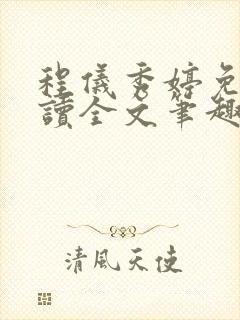 程儀秀婷免
讀全文筆趣
清風天使